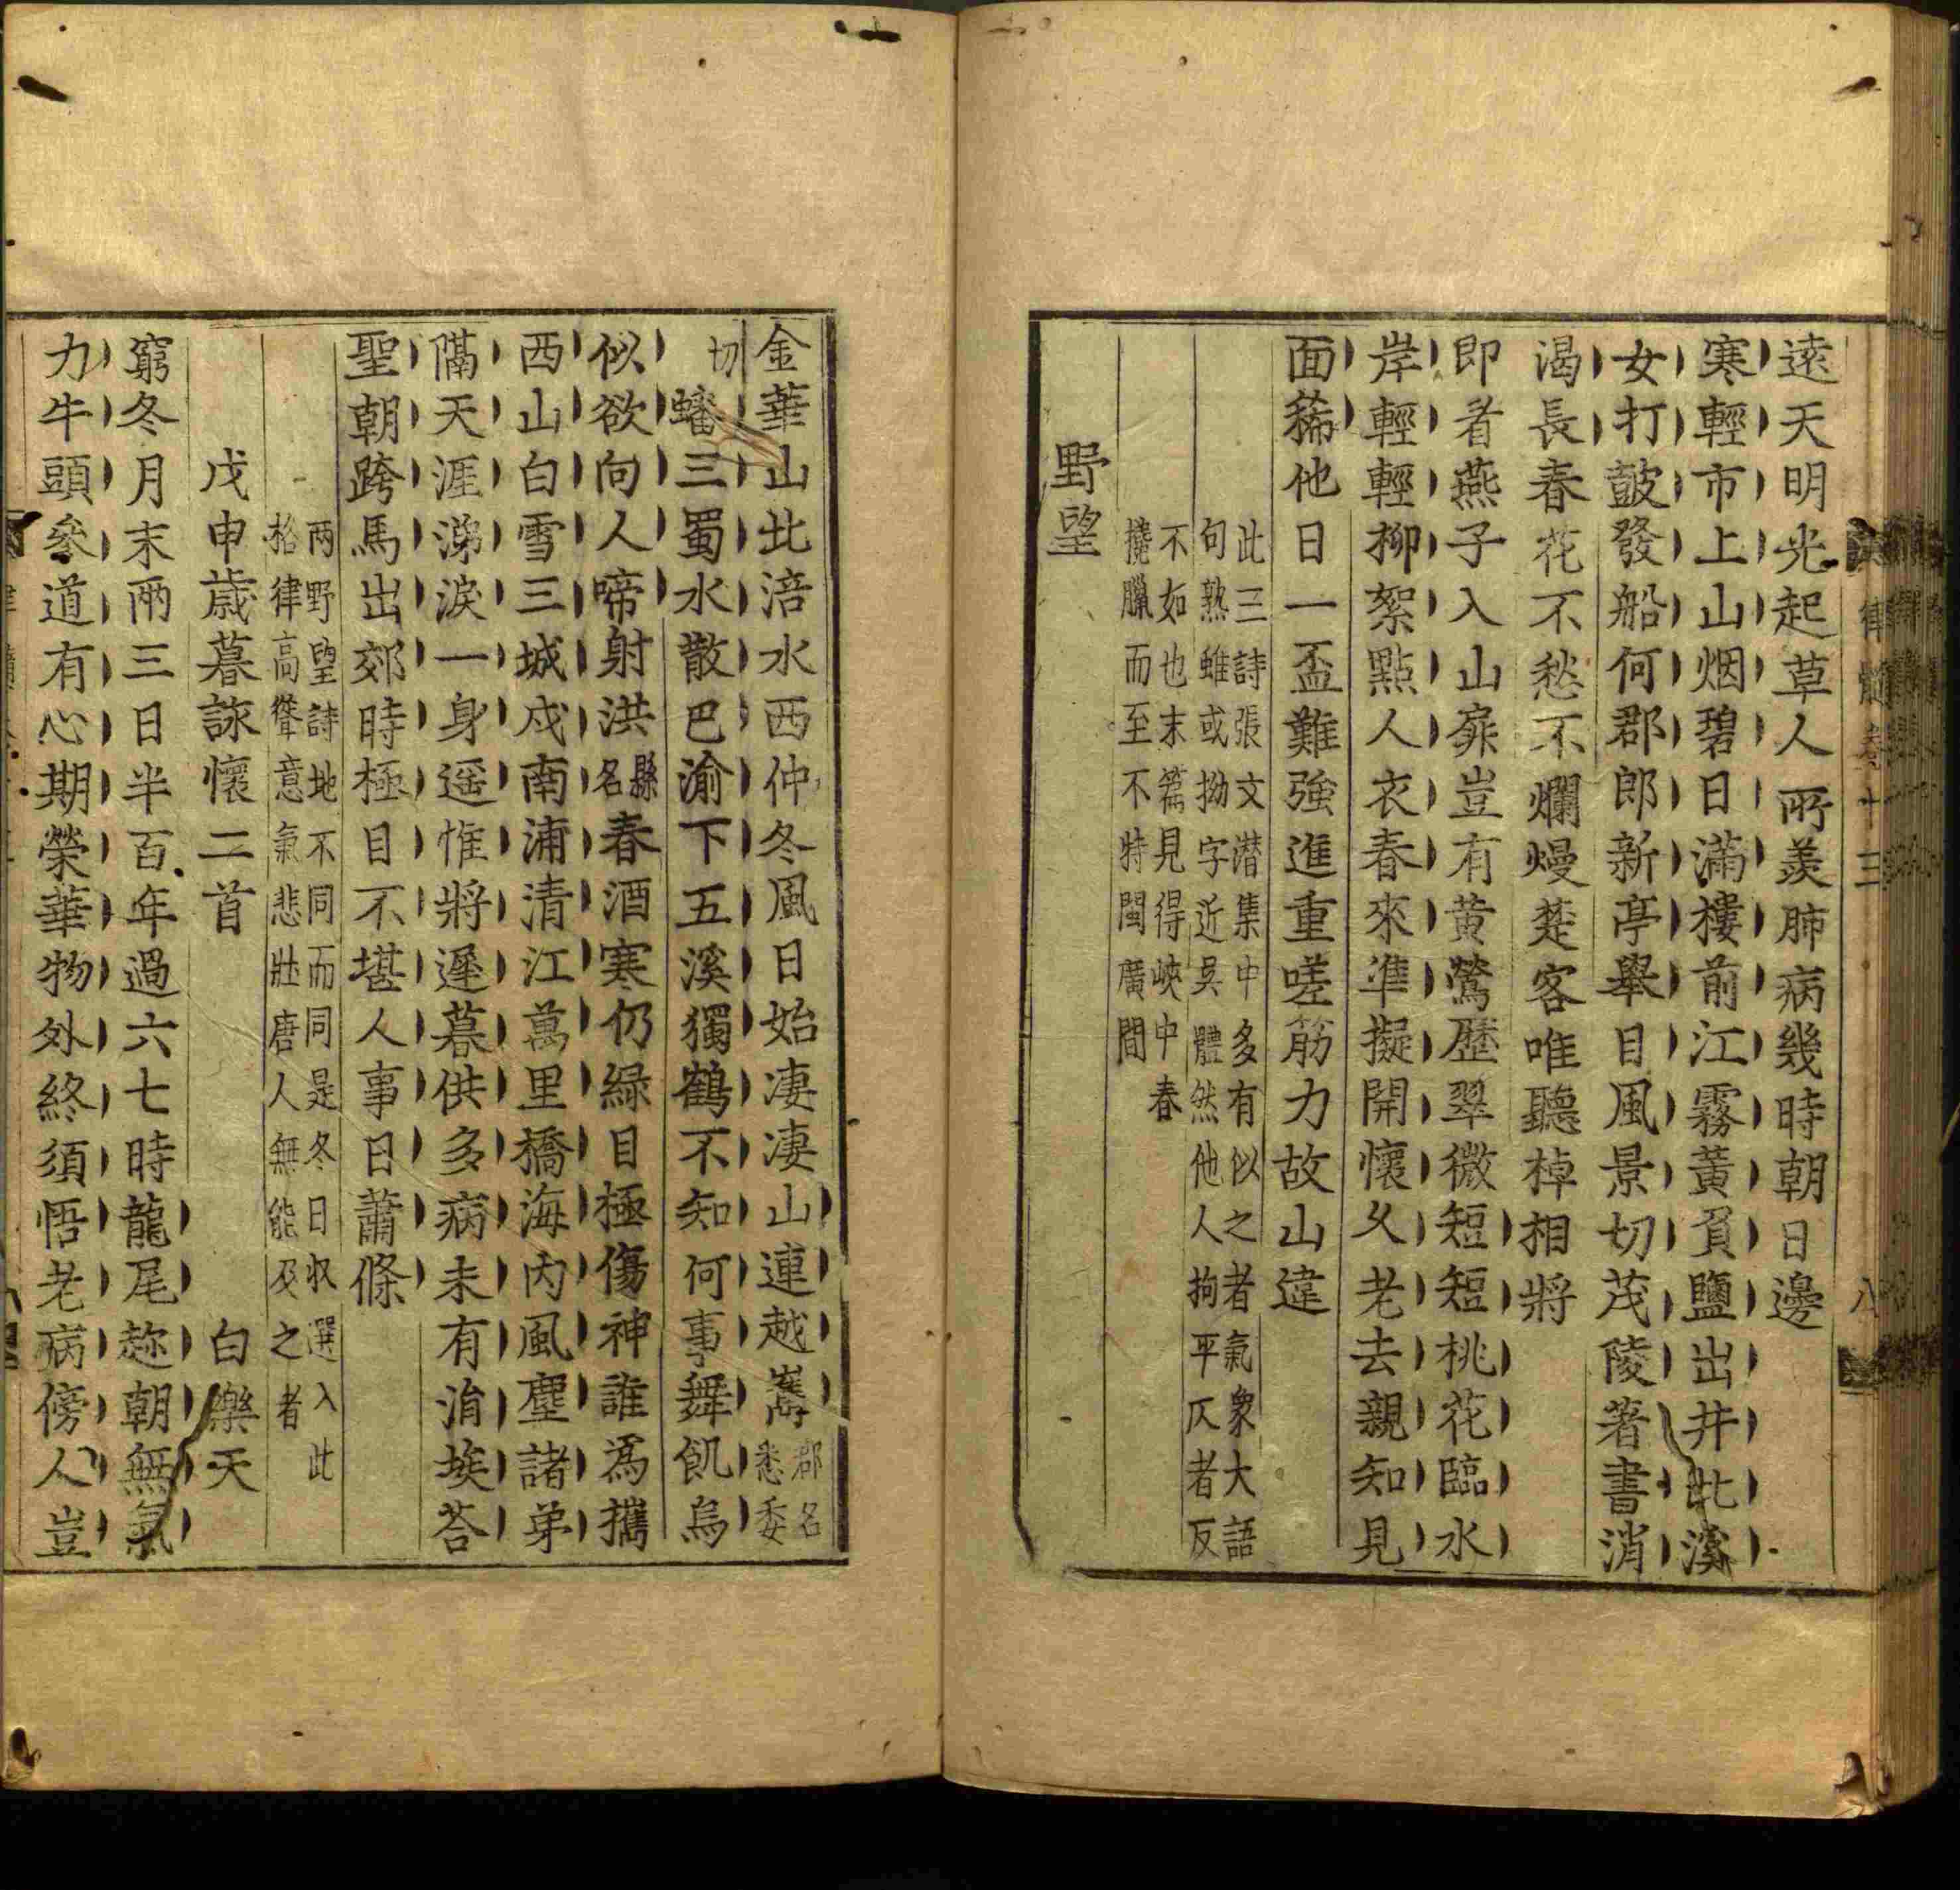 遠天明光起草人所羨肺病幾時朝日邊
寒輕市上山烟碧日滿樓前江霧黃負鹽出井此溪
女打皷發船何郡郎新亭舉目風景切茂陵著書消
渴長春花不愁不爛熳楚客唯聽棹相將
即者燕子入山扉豈有黃鶯歷翠微短短桃花臨水
岸輕輕柳絮點人衣春來準擬開懷久老去親知見
面稀他日一盃難強進重嗟筋力故山違
此三詩張文潛集中多有似之者氣象大語
句熟雖或拗字近吳體然他人拘平仄者反
不如也末篇見得峽中春
臘而至不特閩廣間
野望
律髓卷十三 八
金華山北涪水西仲冬風日始凄凄山連越巂郡名悉委
切蟠三蜀水散巴渝下五溪獨鶴不知何事舞飢烏
似欲向人啼射洪縣名春酒寒仍綠目極傷神誰為攜
西山白雪三城戍南浦清江萬里橋海內風塵諸弟
隔天涯涕淚一身遥惟將遲暮供多病未有涓埃荅
聖朝跨馬出郊時極目不堪人事日蕭條
兩野望詩地不同而同是冬日収選入此
格律高聳意氣悲壯唐人無能及之者
戊申歲暮詠懷二首 白樂天
窮冬月末兩三日半百年過六七時龍尾趂朝無氣
力牛頭參道有心期榮華物外終須悟老病傍人豈